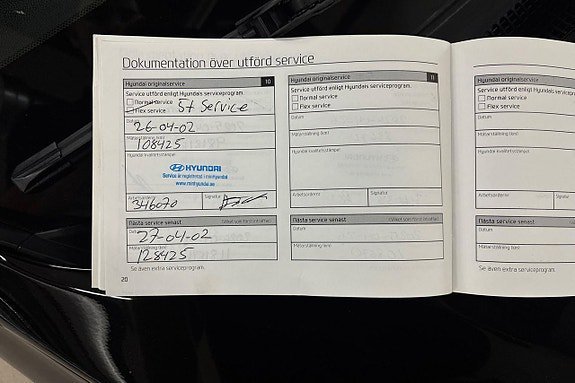 Dokumentation över utförd service
Hyundai originalservice 10
Service utförd enligt Hyundais serviceprogram.
Normal service
Flex service
St Service
Datum
26-04-02
Mätarställning (km)
108425
Hyundai kvalitetsstämpel
HYUNDAI
Service är registrerad i minhyundai
www.minhyundai.se
Arbetsordernr Signatur
346070
Nästa service senast (Vilket som först inträffar)
Datum
27-04-02
Mätarställning (km)
128425
Se även extra serviceprogram.
20
Hyundai originalservice 11
Service utförd enligt Hyundais serviceprogram.
Normal service
Flex service
Datum
Mätarställning (km)
Hyundai kvalitetsstämpel
Arbetsordernr Signatur
Nästa service senast (Vilket som först inträffar)
Datum
Mätarställning (km)
Se även extra serviceprogram.
Hyundai originalservice
Service utförd enligt Hyundais
Normal service
Flex service
Datum
Mätarställning (km)
Hyundai kvalitetsstämpel
Arbetsordernr
Nästa service senast
Datum
Mätarställning (km)
Se även extra serviceprogram.